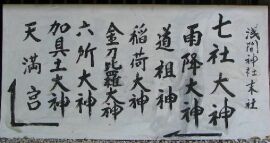 浅間神社末社
七社大神
雨降大神
道祖神
稲荷大神
金刀比羅大神
六所大神
加具土大神
天満宮